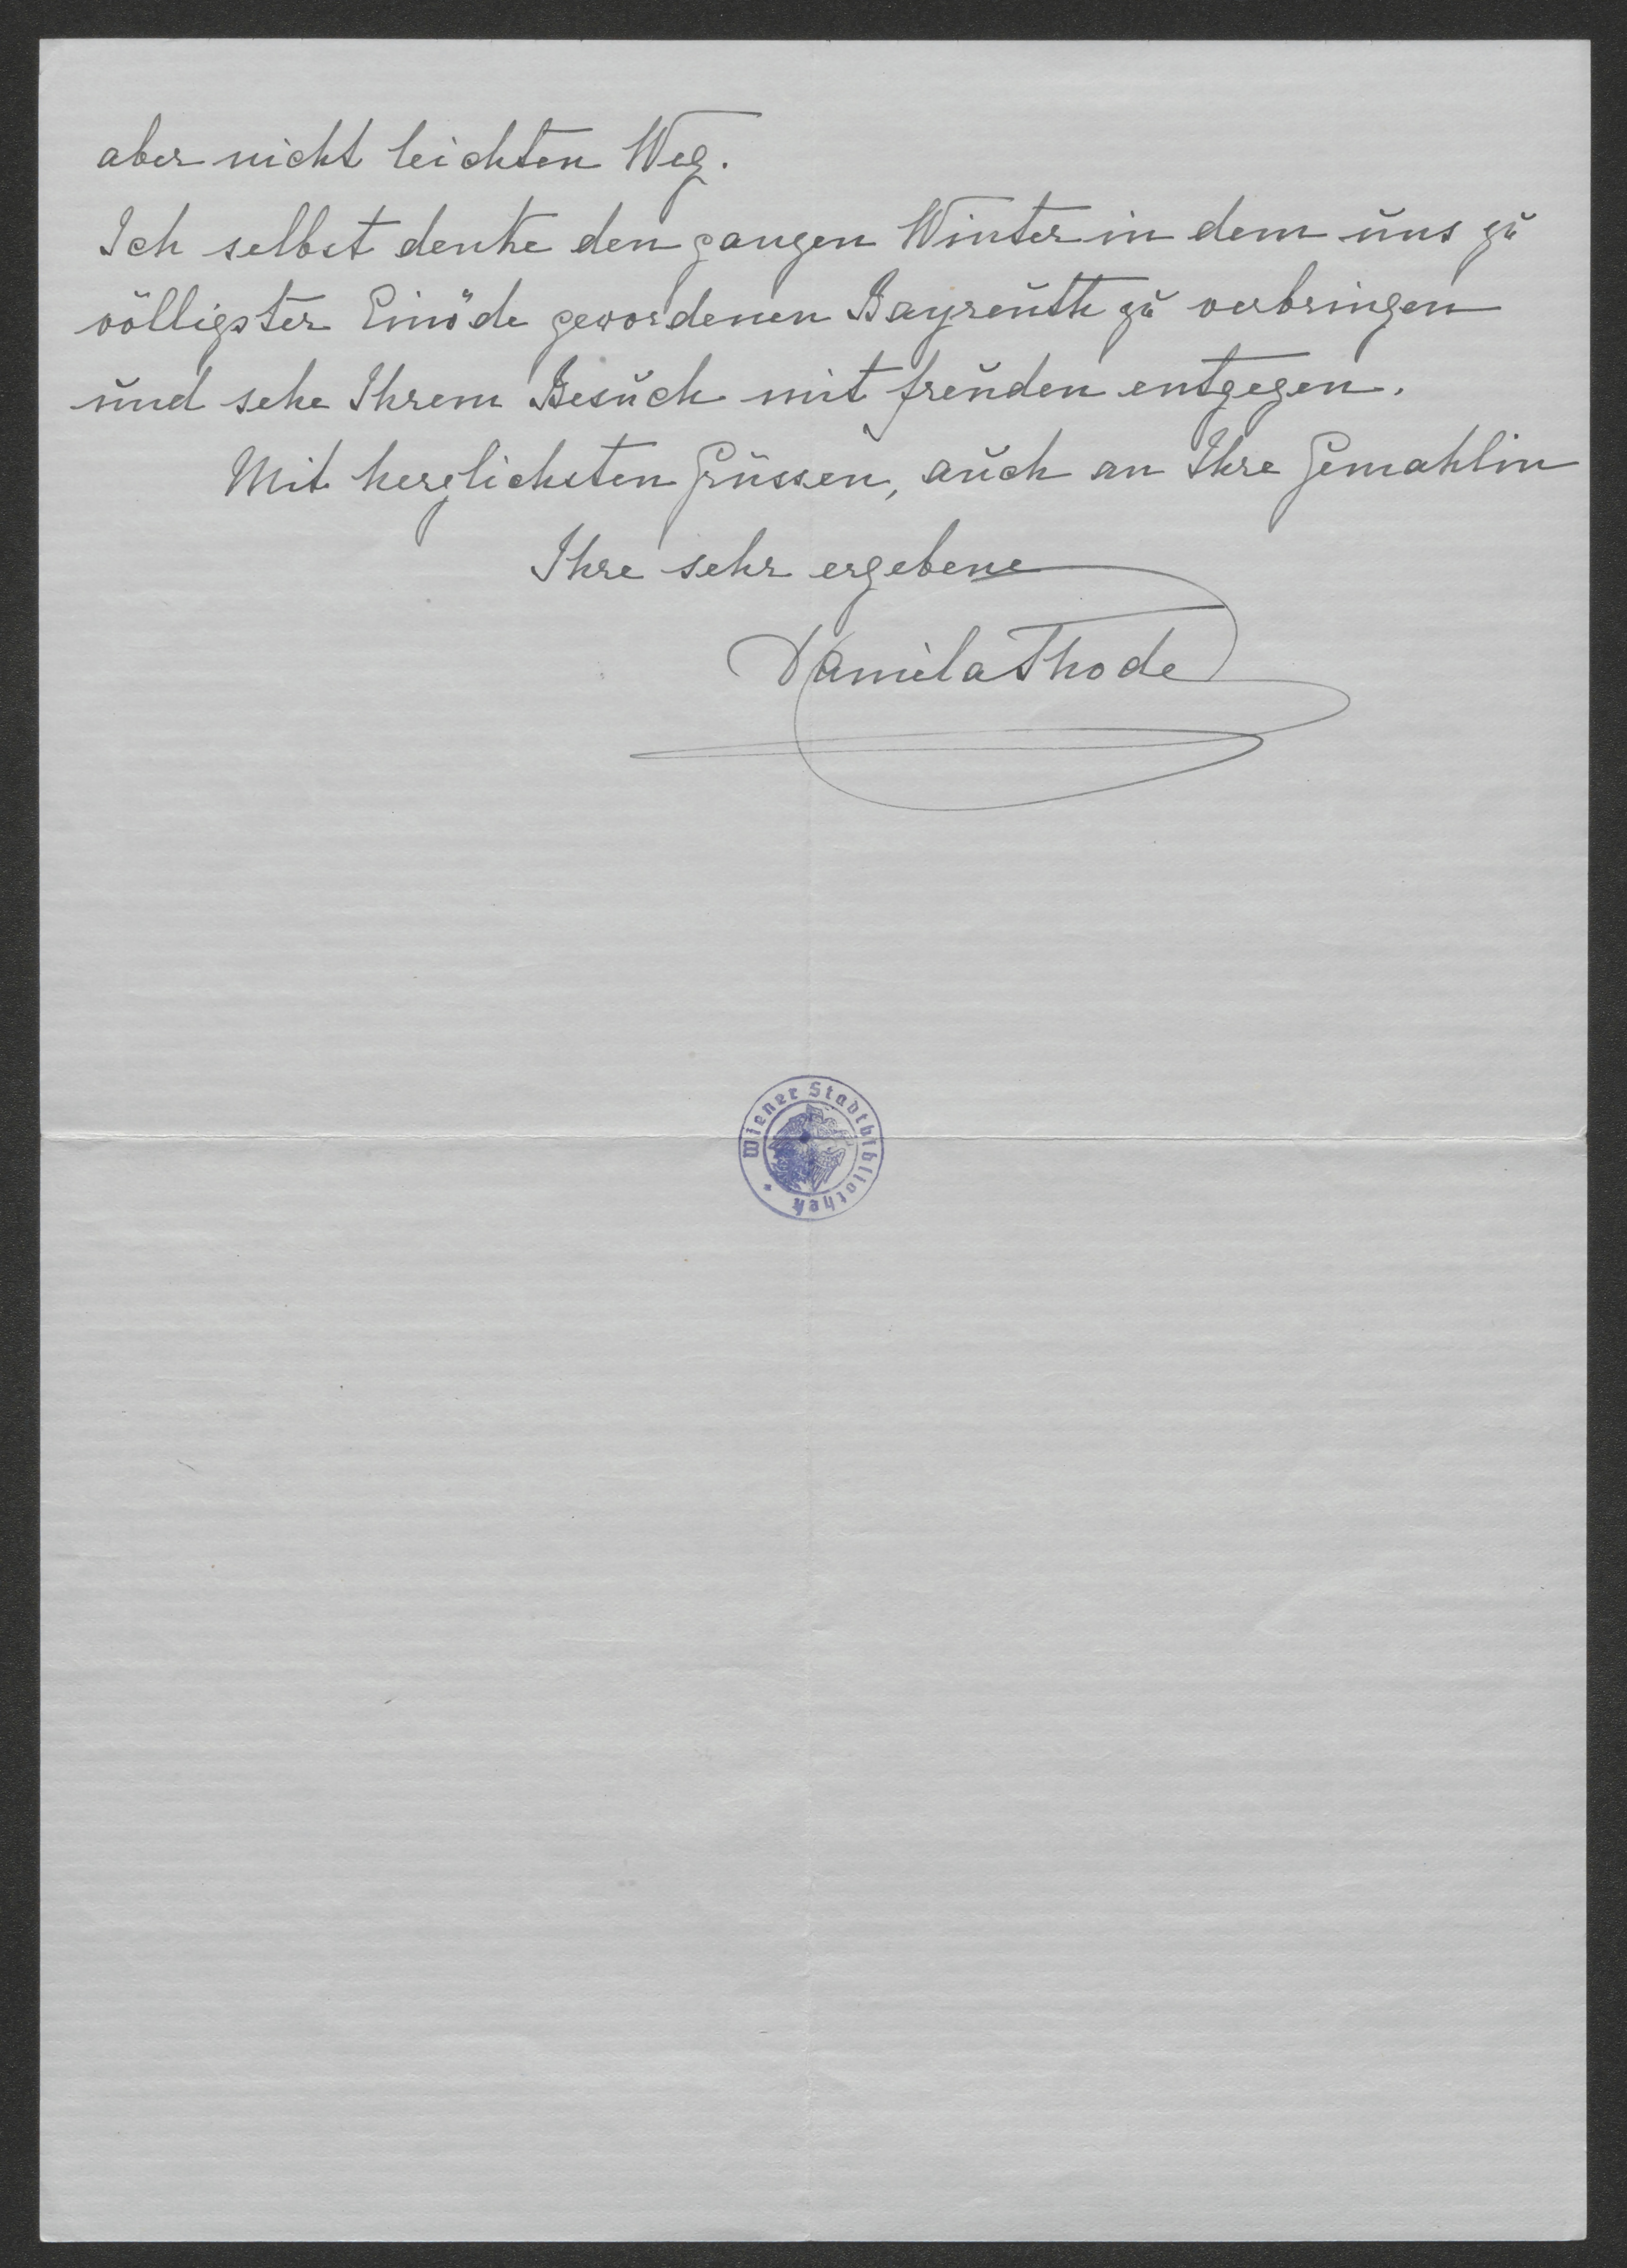 aber nicht leichten Weg.
Ich selbst denke den ganzen Winter in dem uns zu
völligster Einöde gewordenen Bayreuth zu verbringen
und sehe Ihrem Besuch mit freuden entgegen.
Mit herzlichsten Grüssen, auch an Ihre Gemahlin
Ihre sehr ergebene
Daniela Thode
Wiener Stadtbibliothek